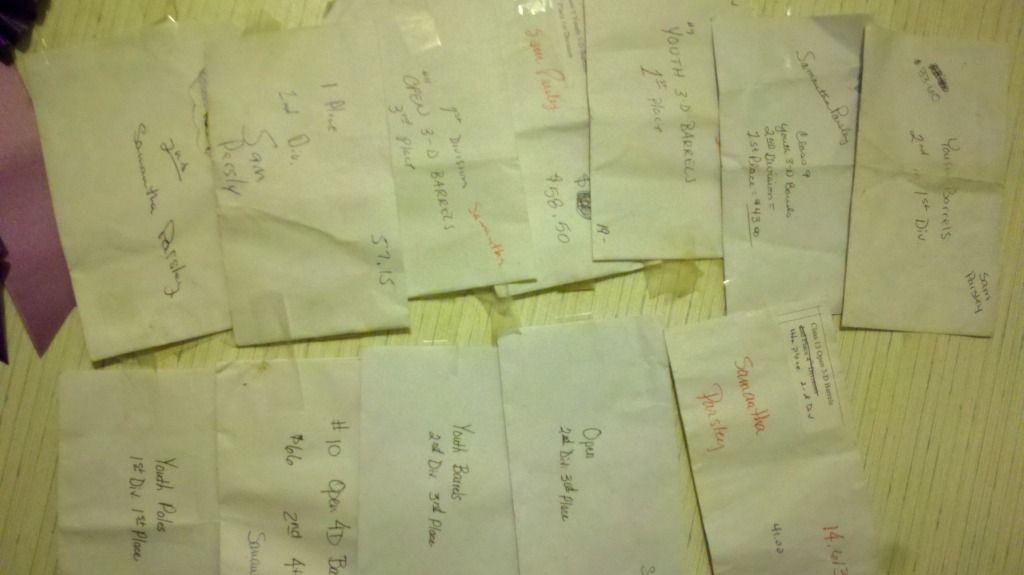 2nd
Samantha Parsley
1 Place
2nd Div.
Sam
Parsly
57.15
1st Division
#7 OPEN 3-D BARRELS
3rd Place
Samantha
Sam Parsley
$58.50
YOUTH 3-D BARRELS
1ST Place
19-
Samantha Parsley
Class 9
Youth 3-D Barrels
2nd Division =
1st Place = $43.00
Youth Barrels
2nd 1st Div.
Sam
Parsley
Youth Poles
1st Div. 1st Place
#10 Open 4D Ba
$66 2nd 4
Saman
Youth Barrels
2nd Div. 3rd Place
Open
2nd Div. 3rd Place
Class 13 Open 3-D Barrels
2nd Div
Samantha
Parsley
14.613
41.00